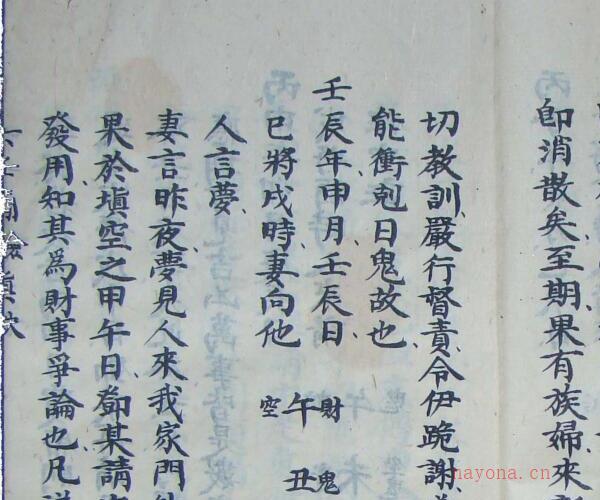 卽消散矣至期果有族婦來
切教訓嚴行督責令伊跪謝
能衝剋日鬼故也
壬辰年申月壬辰日
巳將戌時妻向他
財 鬼
午 丑
空
人言夢
妻言昨夜夢見人來我家門
果於塡空之甲午日鄧某請
發用知其爲財事爭論也凡
nayona.cn